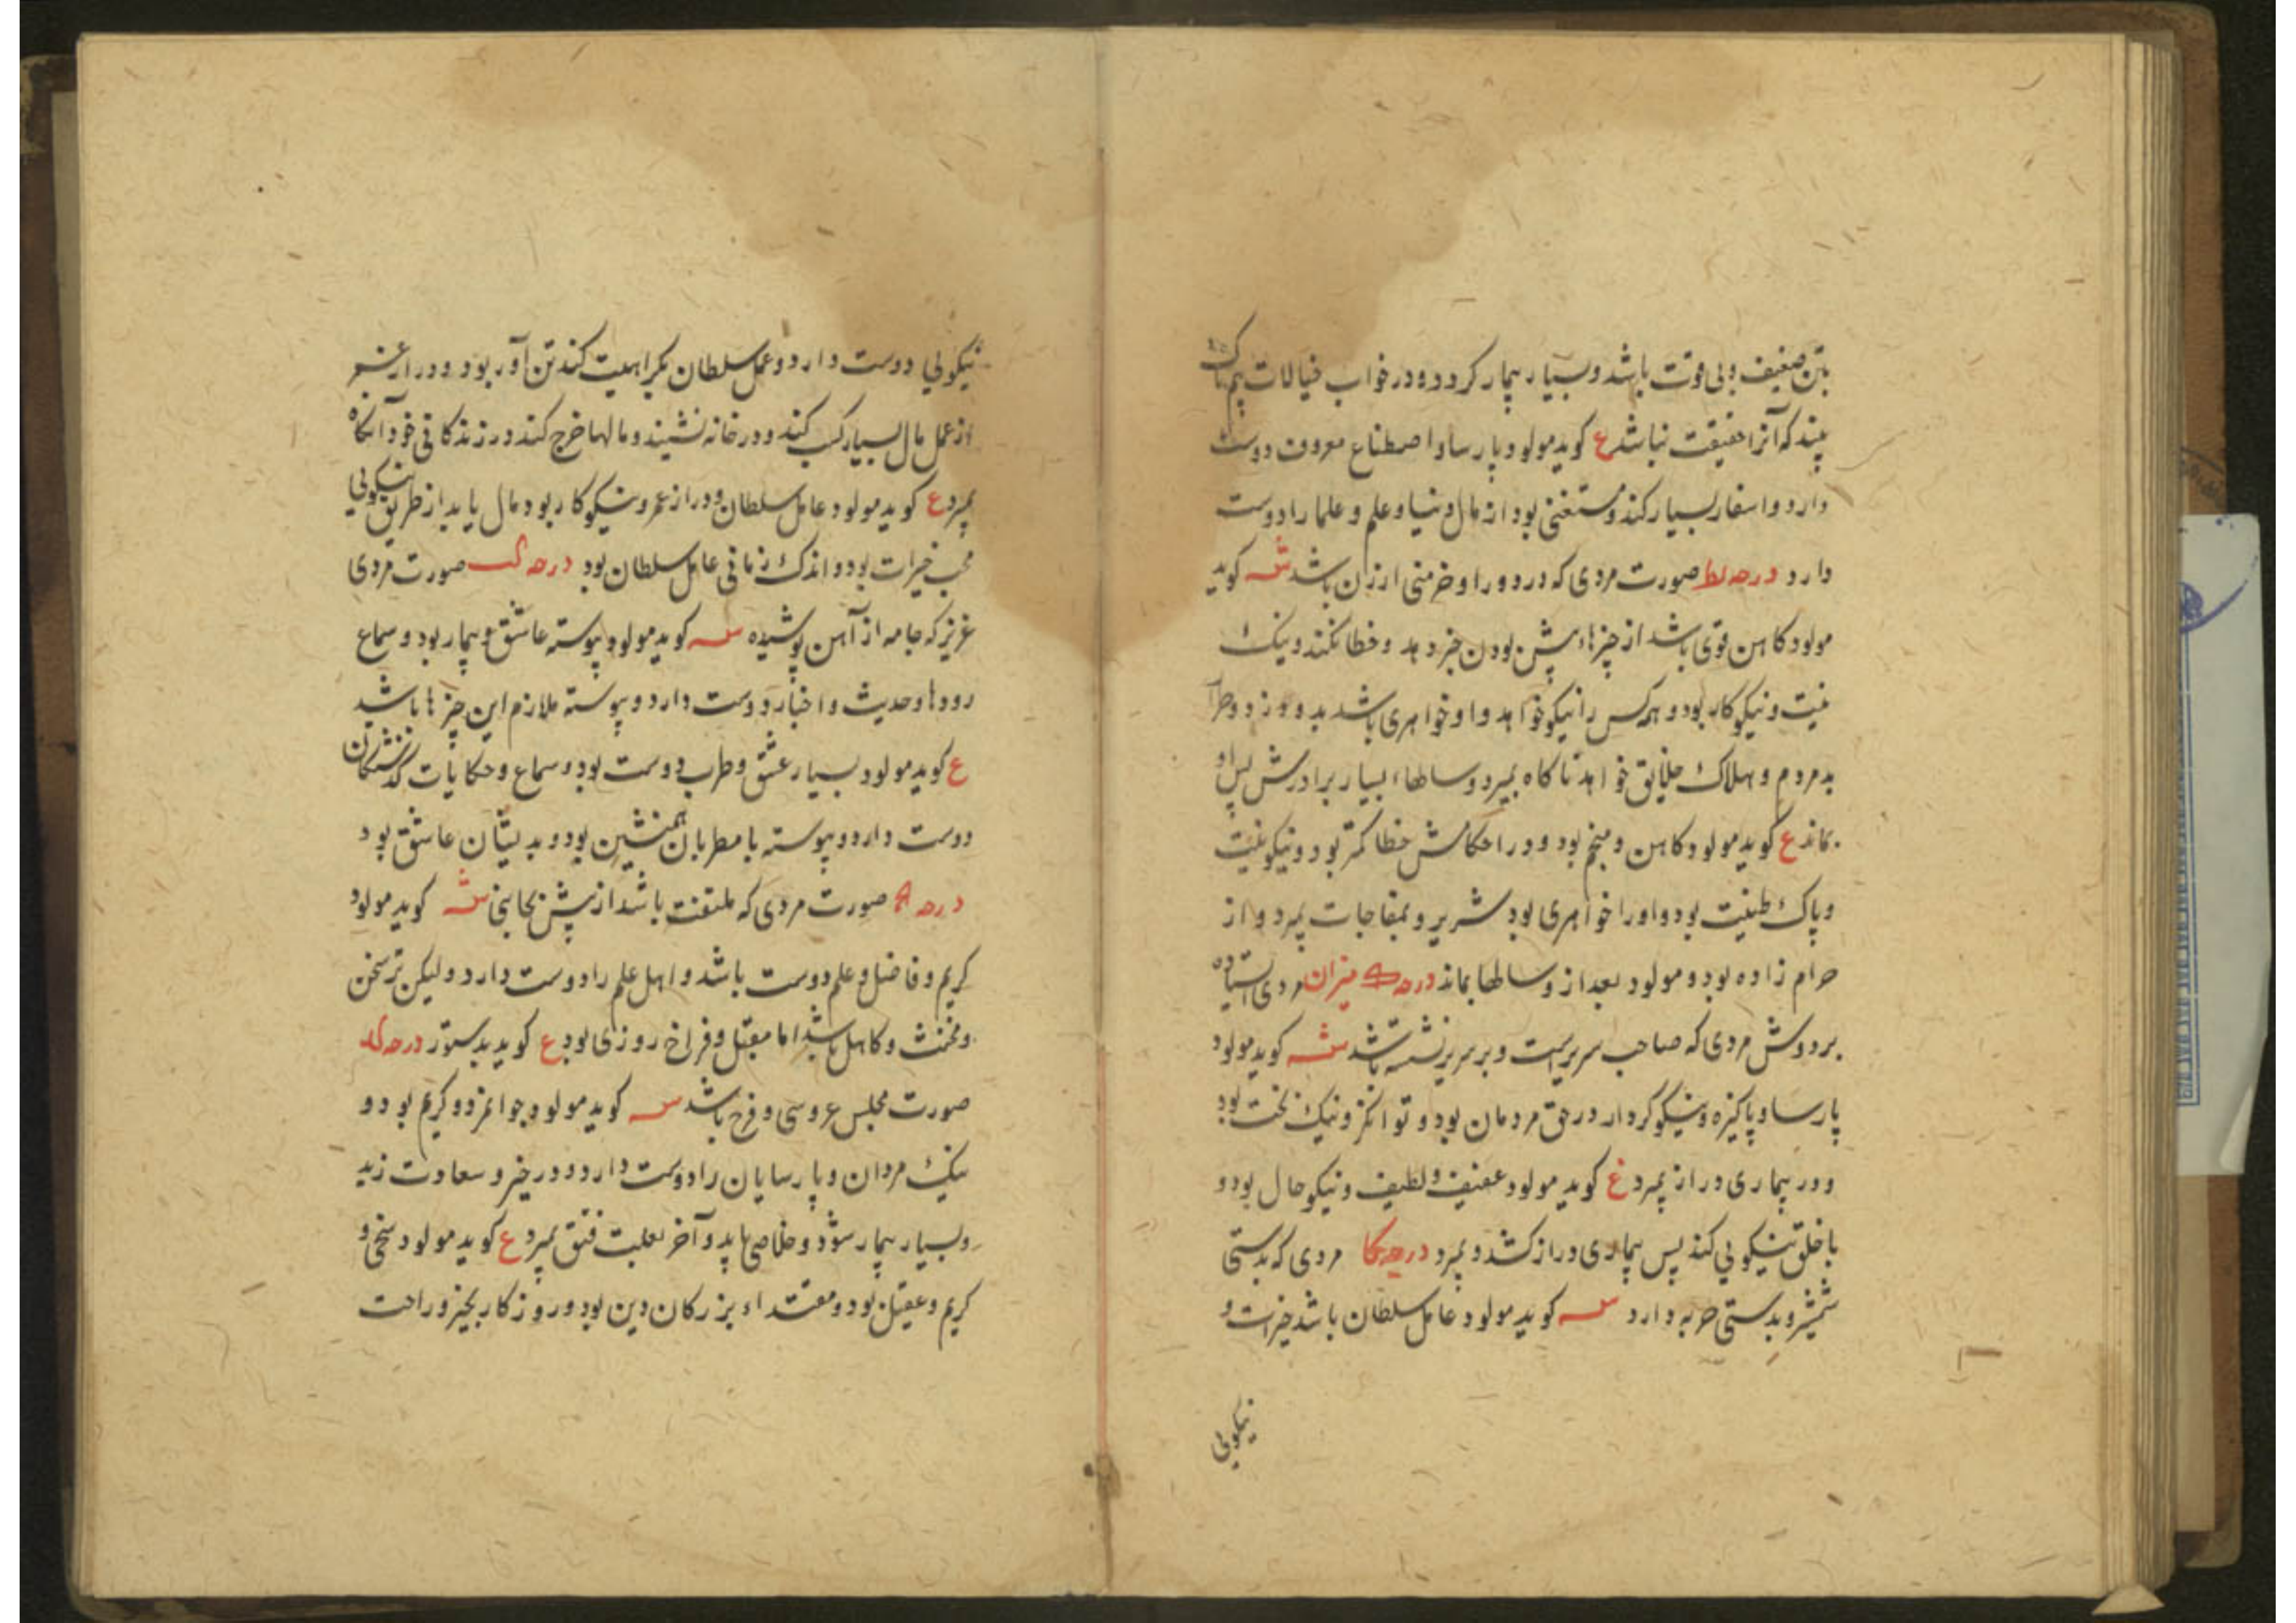 بتن ضعیف و بی قوت باشد و بسیار بیمار کردد و در خواب خیالات بیمناک
بیند که آنرا حقیقت نباشد ع کوید مولود پارسا و اصطناع معروف دوست
دارد و اسفار بسیار کند و مستغنی بود از مال دنیا و علم و علما را دوست
دارد درجه یط صورت مردی که در دور او خرمنی ارزن باشد کوید
مولود کاهن قوی باشد از چیزهاء پیش بودن خبر دهد و خطا نکند و نیک
نیت و نیکوکار بود و همه کس را نیکو خواهد و او خواهری باشد بد و
بد مردم و هلاک خلایق خواهد ناکاه بمیرد و سالهاء بسیار برادرش پس او
بماند ع کوید مولود کاهن و منجم بود و در احکامش خطا کمتر بود و نیکو نیت
و پاک طینت بود و اورا خواهری بود شریر و بمفاجات بمیرد و از
حرام زاده بود و مولود بعد از و سالها بماند درجه ک میزان مردی ایستاده
بر دوش مردی که صاحب سریرست و بر سریر نشسته باشد کوید مولود
پارسا و پاکیزه و نیکو کردار در حق مردمان بود و توانکر و نیک بخت بود
و در بیماری دراز بمیرد ع کوید مولود عفیف و لطیف و نیکو حال بود و
با خلق نیکویی کند پس بیماری دراز کشد و بمیرد درجه کا مردی که بدستی
شمشیر و بدستی حربه دارد کوید مولود عامل سلطان باشد خیرات و
نیکویی
نیکویی دوست دارد و عمل سلطان بکراهیت کند تن آور بود و دراز عمر
از عمل مال بسیار کسب کند و در خانه نشیند و مالها خرج کند و در زندکانی خود آنکاه
بمیرد ع کوید مولود عامل سلطان و دراز عمر و نیکوکار بود مال یابد از طریق نیکویی
محب خیرات بود و اندک زمانی عامل سلطان بود درجه کب صورت مردی
عزیز که جامه از آهن پوشیده کوید مولود پیوسته عاشق و بیمار بود و سماع
رودها و حدیث و اخبار دوست دارد و پیوسته ملازم این چیزها باشد
ع کوید مولود بسیار عشق و طرب دوست بود و سماع و حکایات کذشتکان
دوست دارد و پیوسته با مطربان همنشین بود و بدیشان عاشق بود
درجه صورت مردی که ملتفت باشد از پیش کوید مولود
کریم و فاضل و علم دوست باشد و اهل علم را دوست دارد و لیکن نرم سخن
و مخنث و کاهل باشد اما مقبل و فراخ روزی بود ع کوید بدستور درجه کد
صورت مجلس عروسی و فرح باشد کوید مولود جوانمرد و کریم بود و
نیک مردان و پارسایان را دوست دارد و در خیر و سعادت زید
و بسیار بیمار شود و خلاصی یابد و آخر بعلت فتق بمیرد ع کوید مولود سخی و
کریم و عقیل بود و مقتداء بزرکان دین بود و روزکار بخیر و راحت